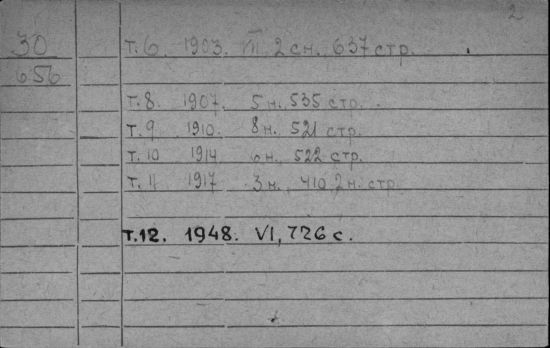 2
30
656
т. 6 1903. VII, 2 сн. 637 стр.
т. 8. 1907. 5 н. 535 стр.
т. 9 1910. 8 н. 521 стр.
т. 10 1914 н., 522 стр.
т. 11 1917 3 н., 410, 2 н. стр.
т. 12. 1948. VI, 726 с.